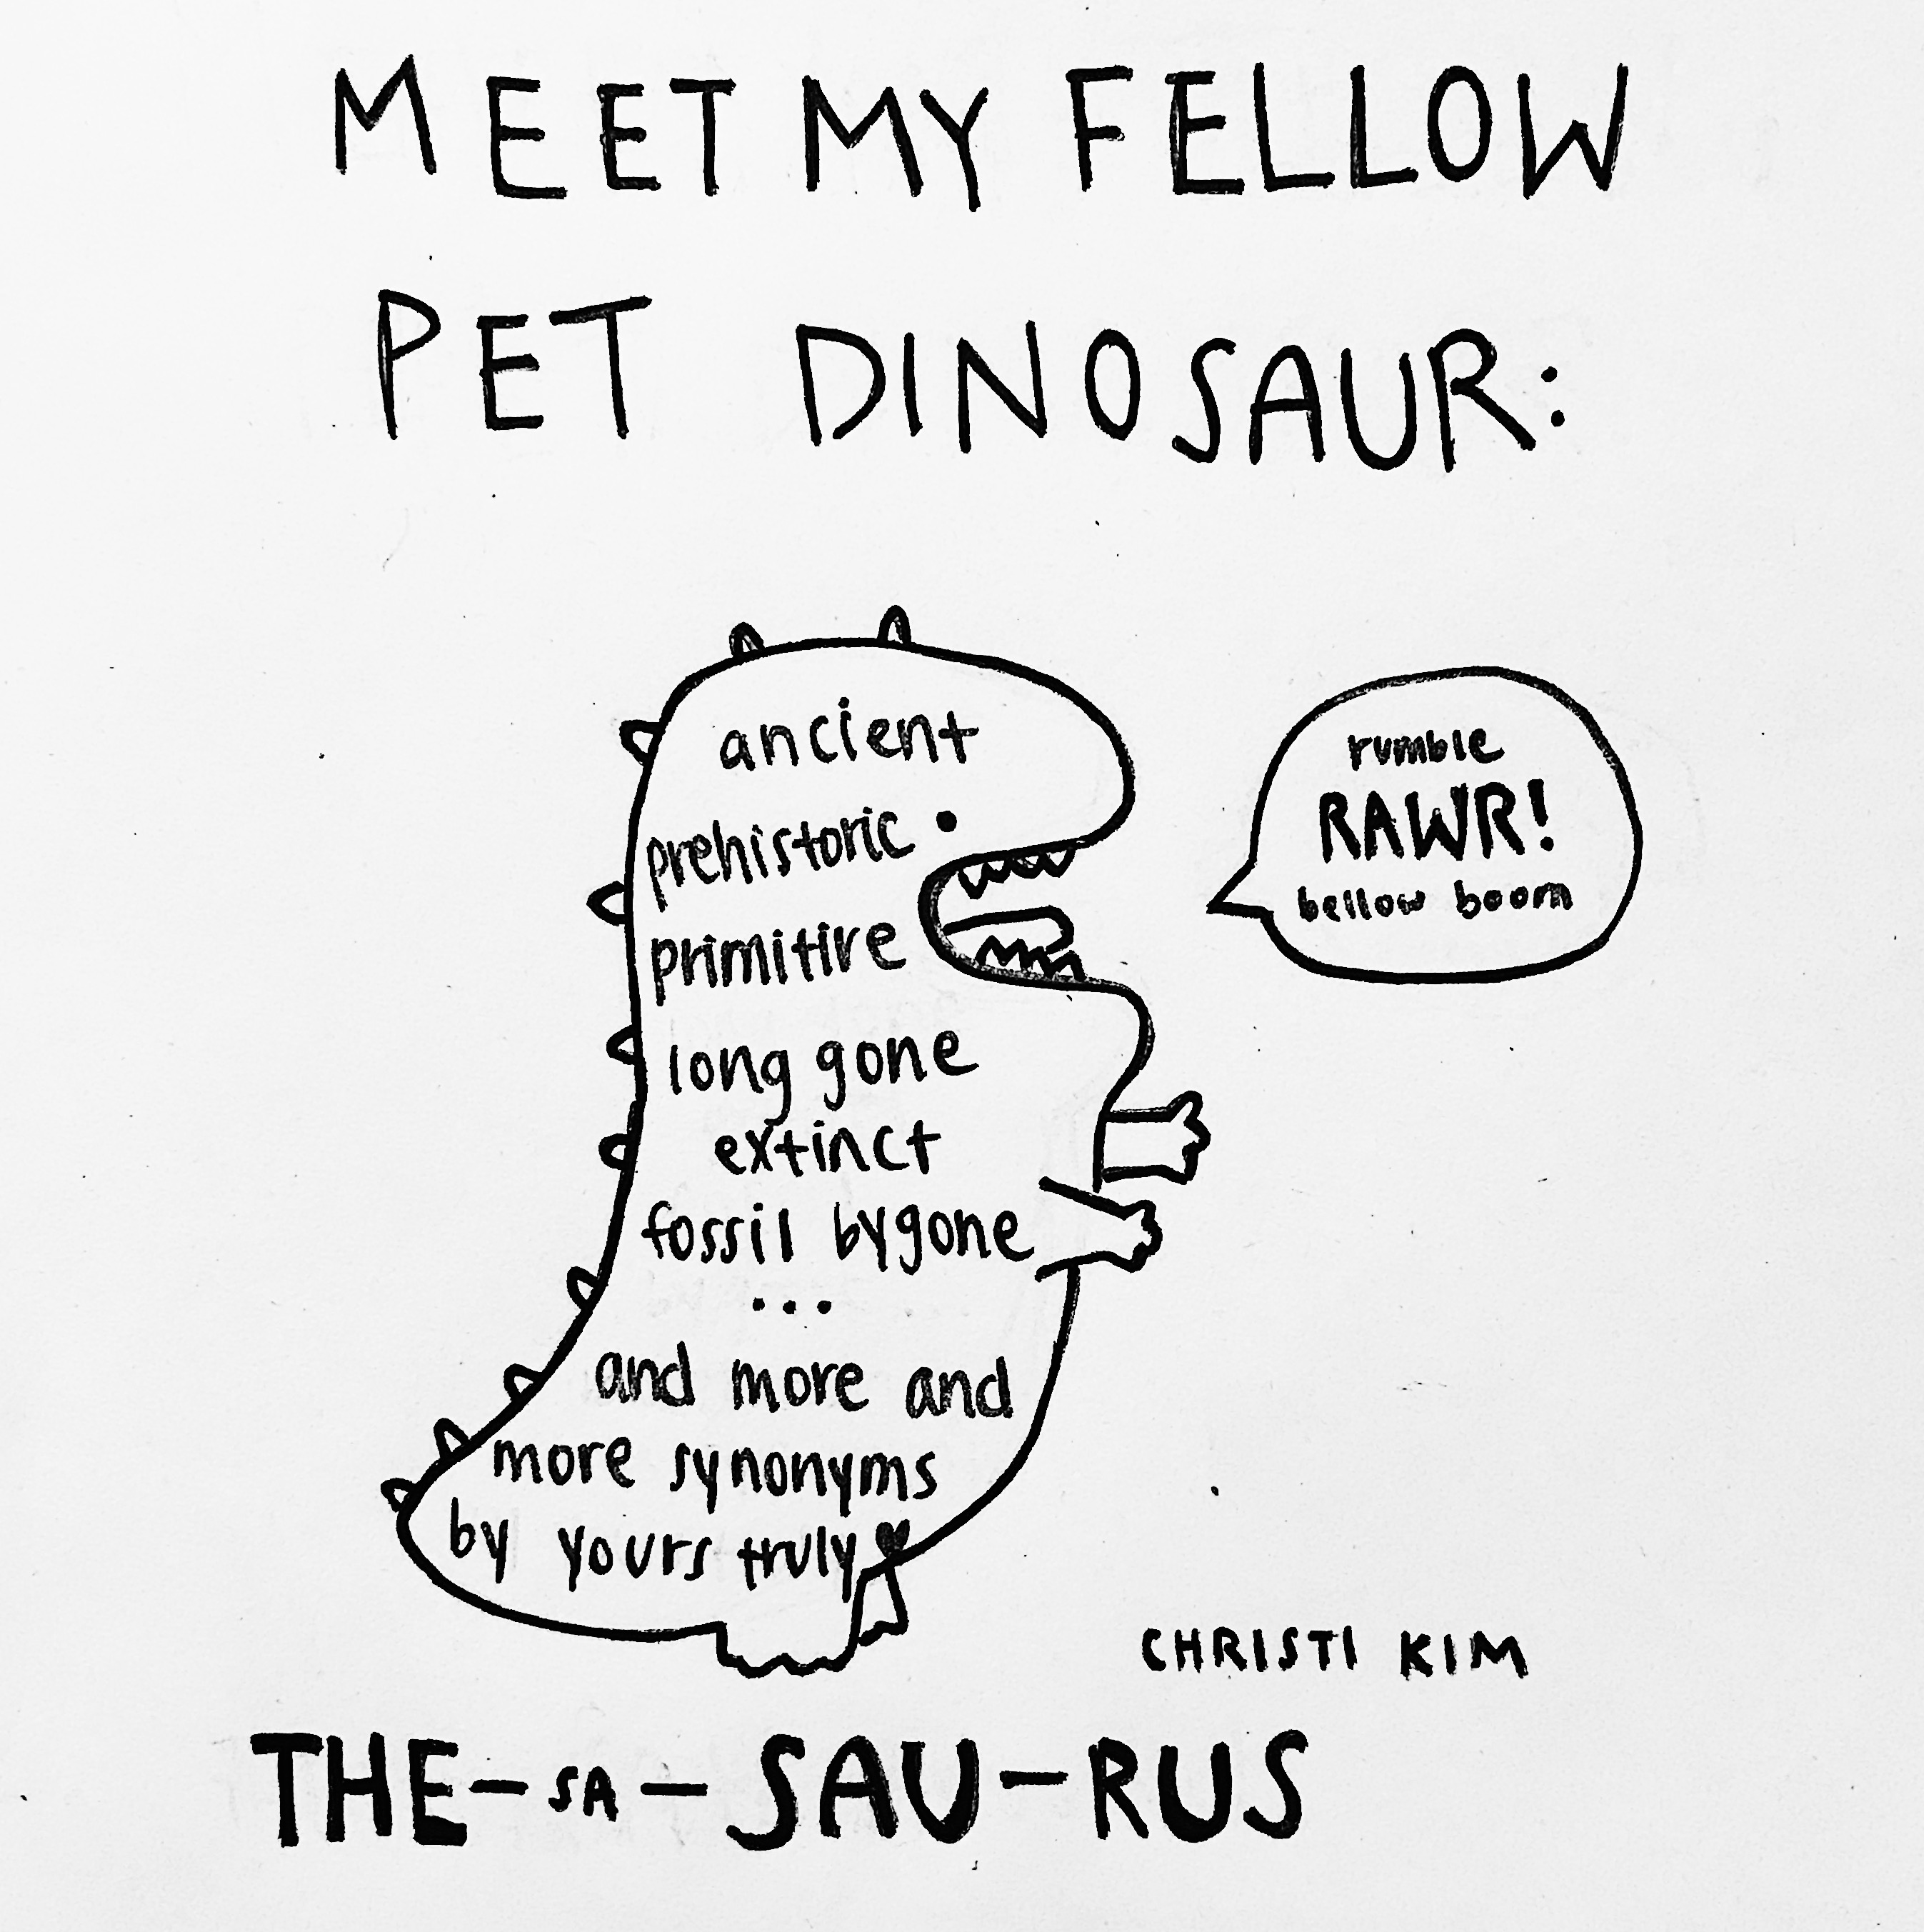 MEET MY FELLOW
PET DINOSAUR:
ancient
prehistoric
primitive
long gone
extinct
fossil bygone
...
and more and
more synonyms
by yours truly
rumble
RAWR!
bellow boom
CHRISTI KIM
THE-SA-SAU-RUS